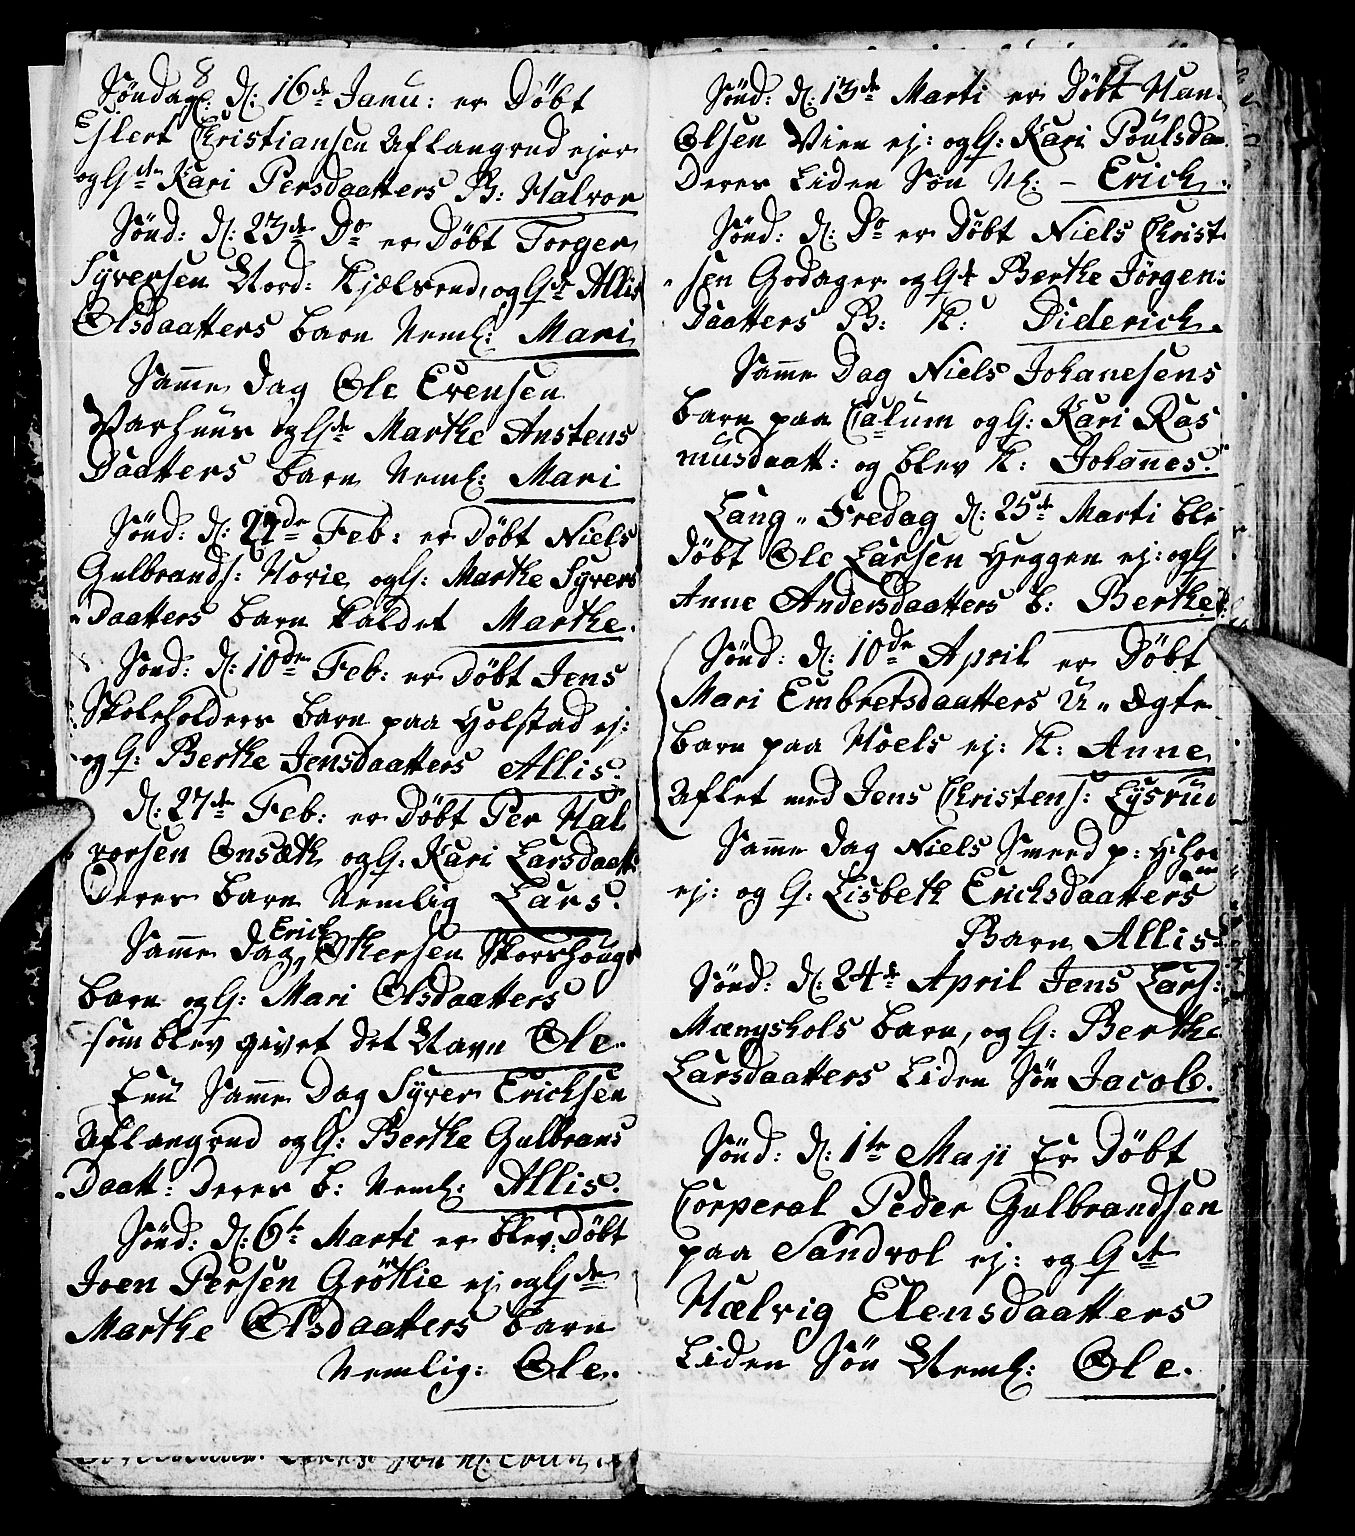 8
Søndag: D: 16de Janu: er Døbt
Ejlert Christiansen Aflangrud ejer
og G:de Kari Persdaatters B: Halvor
Sønd: D: 23de Do er Døbt Torger
Syversen Nord: Kjælsrud, og G:de Allis
Olsdaatters barn Neml: Mari
Samme Dag Ole Evensen
Varhuus og G:de Marthe Anstens
Daatters barn Neml: Mari
Sønd: D: Feb: er Døbt Niels
Gulbrands: Horie og G: Marthe Syvers
Daatters barn kaldet Marthe.
Sønd: D: 10de Feb: er Døbt Jens
Skoleholders barn paa Holstad ej:
og G: Berthe Jensdaatters Allis.
D: 27de Feb: er Døbt Per Hal
vorsen Onsæth og G: Kari Larsdaatt:
Deres barn Nemlig Lars.
Erich
Samme Dag, Othersen Skorshougs
barn og G: Mari Olsdaatters
som blev givet det Navn Ole.
Enn Samme Dag Syver Erichsen
Aflangrud og G: Berthe Gulbrans
Daatt: Deres b: Neml: Allis.
Sønd: D: 6te Marti er blev Døbt
Joen Persen Grøthie ej og G:de
Marthe Olsdaatters barn
Nemlig: Ole.
Sønd: D: 13de Marti er Døbt Han
Olsen Vien ej: og G: Kari Poulsda
Deres Liden Søn N: - Erich.
Sønd: D: Do er Døbt Niels Christ
sen Godager og G:de Berthe Jørgen:
Daatters B: K: Diderich.
Samme Dag Niels Johanesens
barn paa Calum og G: Kari Ras
musdaatt: og blev K: Johannes.
Lang-Fredag D: 25de Marti ble
Døbt Ole Larsen Heggen ej: og G
Anne Andersdaatters b: Berthe
Sønd: D: 10de April er Døbt
Mari Embretsdaatters U-Ægte
barn paa Hoels ej: K: Anne
Aflet med Jens Christens: Lysrud
Samme Dag Niels Smeed p:
ej: og G: Lisbeth Erichsdaatters
Barn Allis
Sønd: D: 24de April Jens Lars:
Mængshols barn, og G: Berthe
Larsdaatters Liden Søn Jacob.
Sønd: D: 1te Maji Er Døbt
Corperal Peder Gulbrandsen
paa Sandvol ej: og G:de
Hælvig Elensdaatters
Liden Søn Neml: Ole.